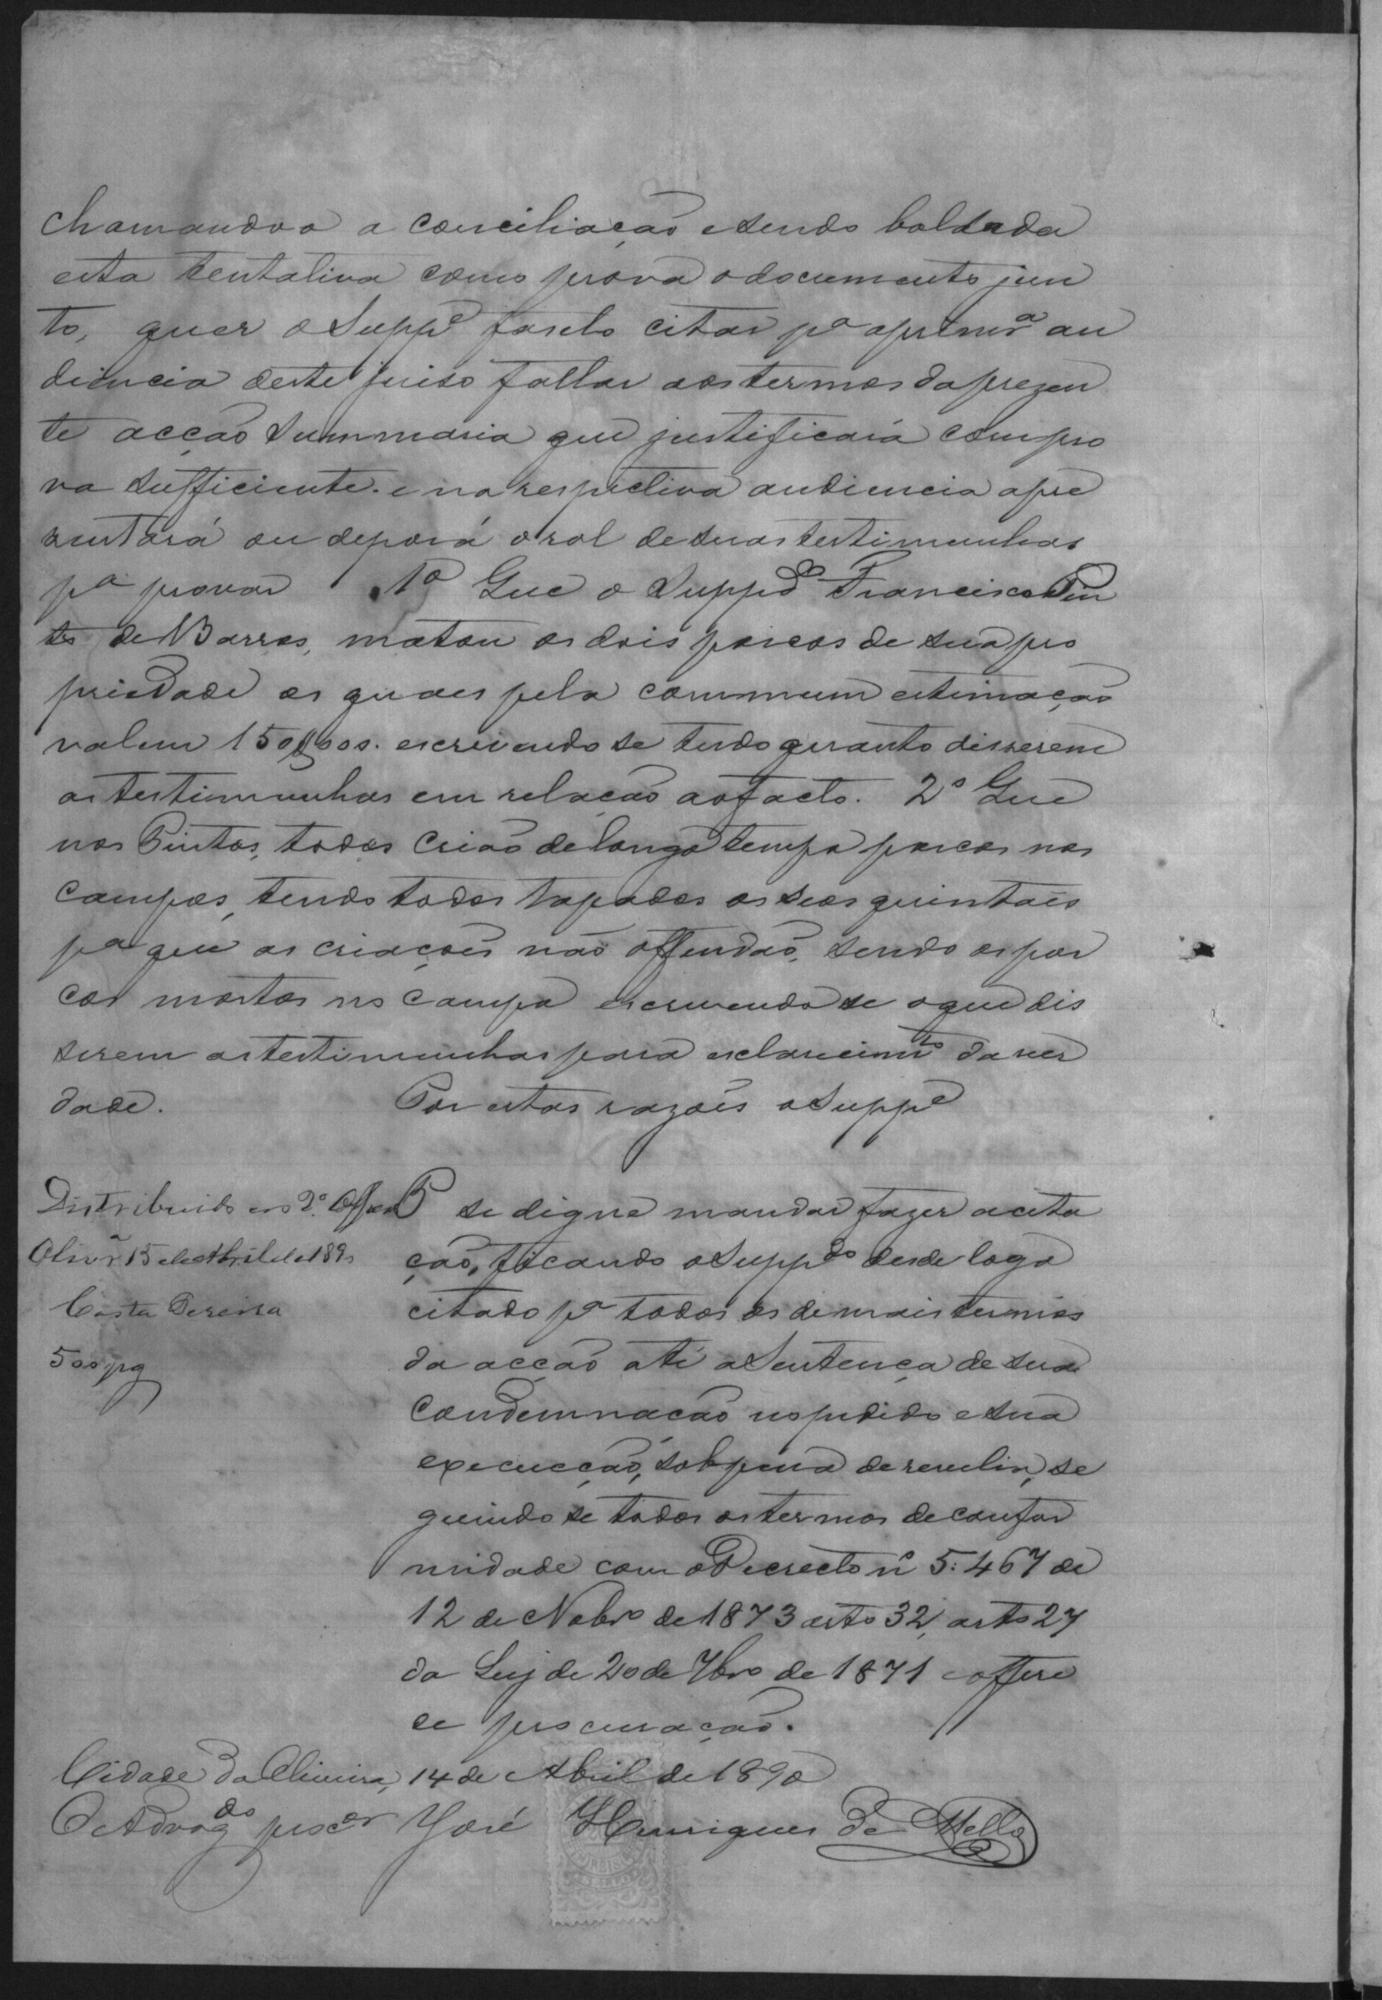 chamando o a conciliação e sendo baldada
esta tentativa como prova o documento jun
to, quer o Suppe faselo citar pa a primra au
diencia deste juiso fallar aos termos da prezen
te acção Summaria que justificará com pro
va sufficiente. e na respectiva audiencia apre
sentará ou deporá o rol de suas testimunhas
pa provar 1º Que o Suppdo Francisco Pin
to de Barros, matou os dois porcos de sua pro
priedade os quaes pela commum estimação
valem 150$000. escrevendo se tudo quanto disserem
as testimunhas em relação ao facto. 2º Que
nos Pintos, todos crião de longo tempo porcos nos
campos, tendo todos tapados os seos quintaes
pa que as criações não offendão, sendo os por
cos mortos no campo escrevendo se o que dis
serem as testimunhas para esclarecimto da ver
dade. Por estas razões o Suppe
Distribuido ao 2º Offo
Olivra 15 de Abril de 1890
Costa Pereira
500 pg
P se digne mandar fazer a cita
ção, ficando o Suppdo desde logo
citado pa todos os demais termos
da acção até a Sentença de sua
condemnação no pedido e sua
execucção, sob pena de revelia, se
guindo se todos os termos de confor
midade com o Decreto nº 5:467 de
12 de Nobro de 1873 arto 32, arto 27
da Ley de 20 de 7bro de 1871 e offere
se procuração.
Cidade da Oliveira, 14 de Abril de 1890
O Advogdo procor José Henriques de Mello